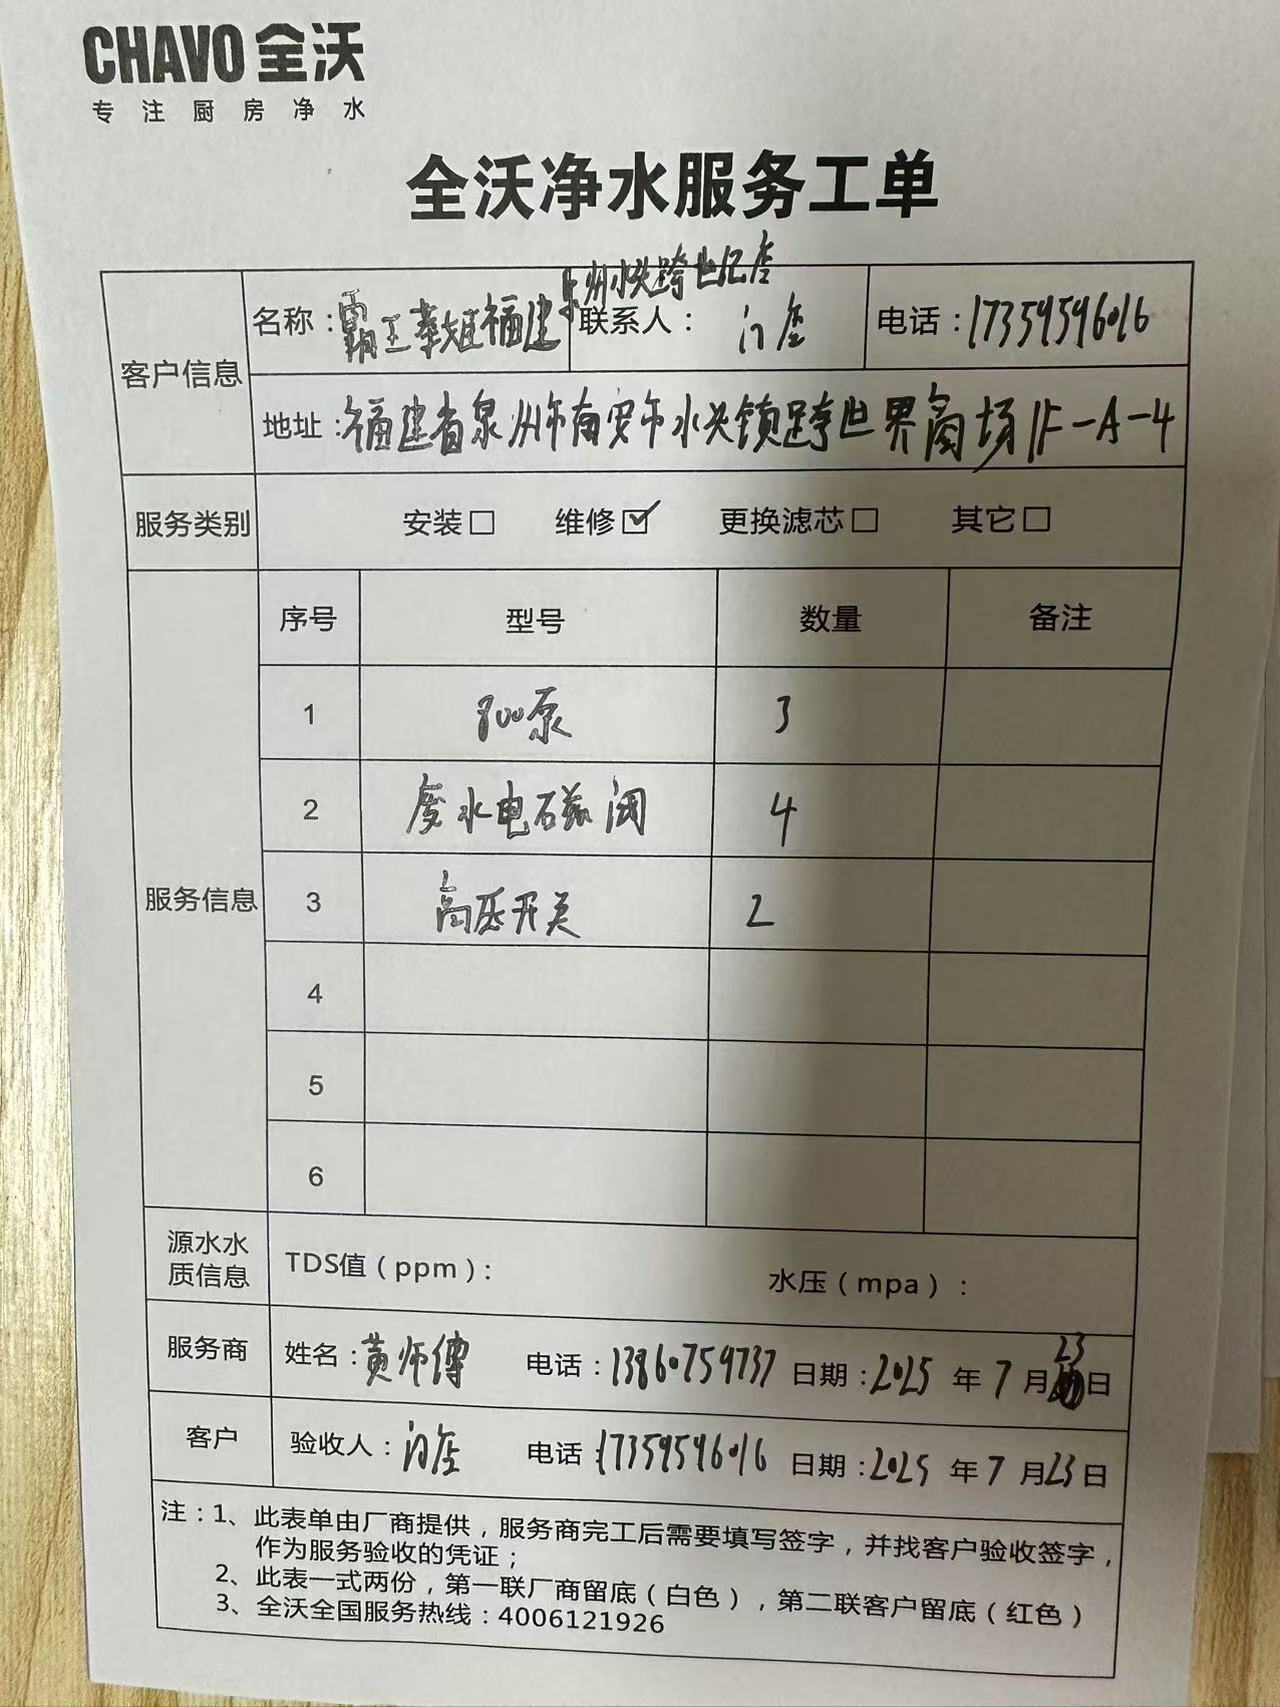 CHAVO 全沃
专注厨房净水
全沃净水服务工单
客户信息
名称：霸王茶姬福建泉州水头跨世纪店
联系人：门店
电话：17359596016
地址：福建省泉州市南安市水头镇跨世界商场1F-A-4
服务类别 安装□ 维修☑ 更换滤芯□ 其它□
服务信息
序号 型号 数量 备注
1 800泵 3
2 废水电磁阀 4
3 高压开关 2
4
5
6
源水水质信息 TDS值（ppm）： 水压（mpa）：
服务商 姓名：黄师傅 电话：13860759737 日期：2025年7月23日
客户 验收人：门店 电话：17359596016 日期：2025年7月23日
注：1、此表单由厂商提供，服务商完工后需要填写签字，并找客户验收签字，
作为服务验收的凭证；
2、此表一式两份，第一联厂商留底（白色），第二联客户留底（红色）
3、全沃全国服务热线：4006121926